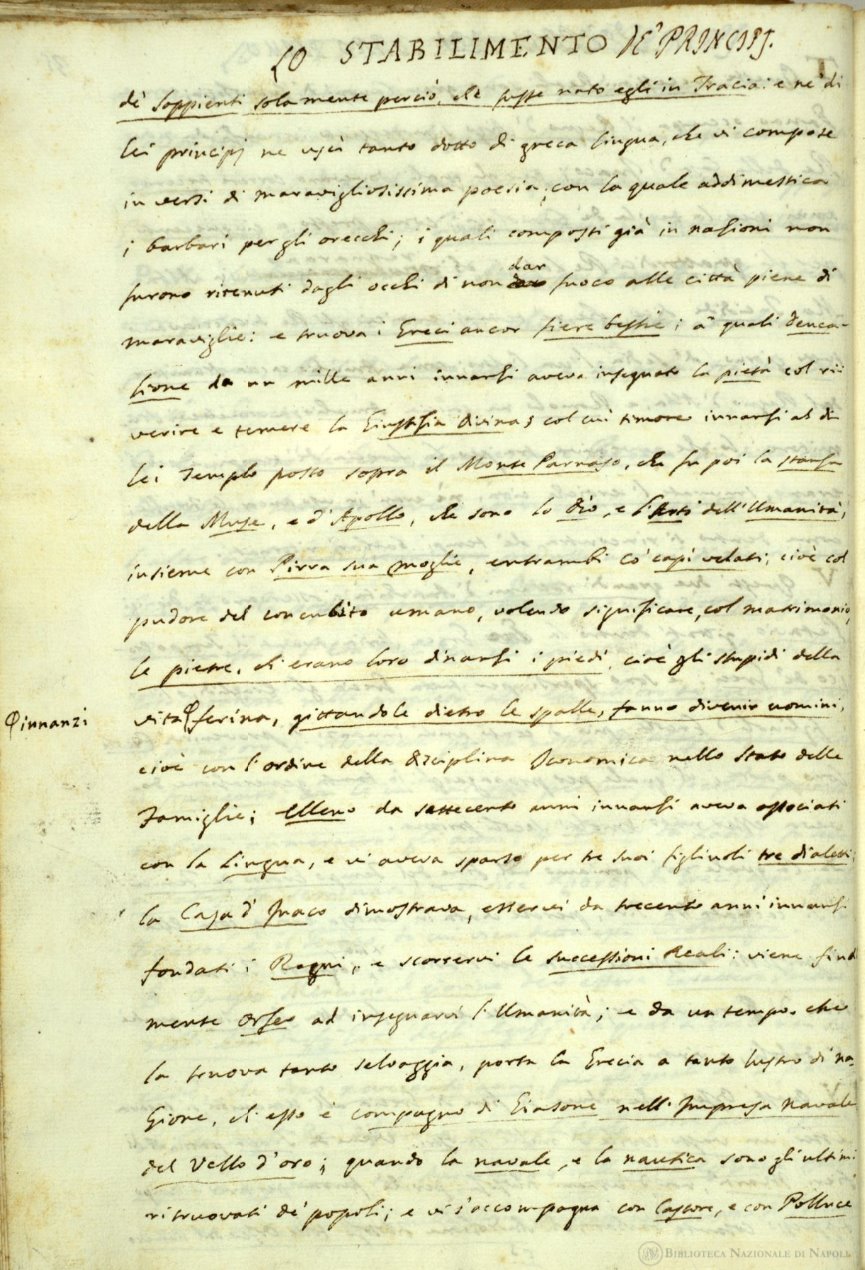 LO STABILIMENTO DE' PRINCIPJ.
de' Sappienti solamente perciò, che fusse nato egli in Tracia: e ne' di
lei principj ne uscì tanto dotto di greca lingua, che vi compose
in versi di maravigliosissima poesia, con la quale addimestica
i barbari per gli orecchi; i quali composti già in nazioni non
dar
furono ritenuti dagli occhi di non fuoco alle città piene di
maraviglie: e truova i Greci ancor fiere bestie; a' quali Deuca-
lione da un mille anni innanzi aveva insegnato la pietà col ri-
verire e temere la Giustizia divina; col cui timore innanzi al di
lei Templo posto sopra il Monte Parnaso, che fu poi la stanza
della Muse, e d'Apollo, che sono lo dio, e l'Arti dell'Umanità,
insieme con Pirra sua moglie, entrambi co' capi velati, cioè col
pudore del concubito umano, volendo significare, col matrimonio,
le pietre, ch'erano loro dinanzi i piedi, cioè gli stupidi della
φ innanzi
vita φ ferina, gittandole dietro le spalle, fanno divenir uomini,
cioè con l'ordine della disciplina Iconomica nello Stato delle
Famiglie; Elleno da settecento anni innanzi aveva associati
con la Lingua, e vi aveva sparso per tre suoi figliuoli tre dialetti;
la Casa d'Inaco dimostrava, esservi da trecento anni innanzi
fondati i Regni, e scorrervi le successioni Reali: viene final
mente Orfeo ad insegnarvi l'Umanità; e da un tempo, che
la truova tanto selvaggia, porta la Grecia a tanto lustro di na-
zione, ch'esso è compagno di Giasone nell'Impresa Navale
del Vello d'oro; quando la navale, e la nautica sono gli ultimi
ritruovati de' popoli; e vi s'accompagna con Castore, e con Polluce
BIBLIOTECA NAZIONALE DI NAPOLI